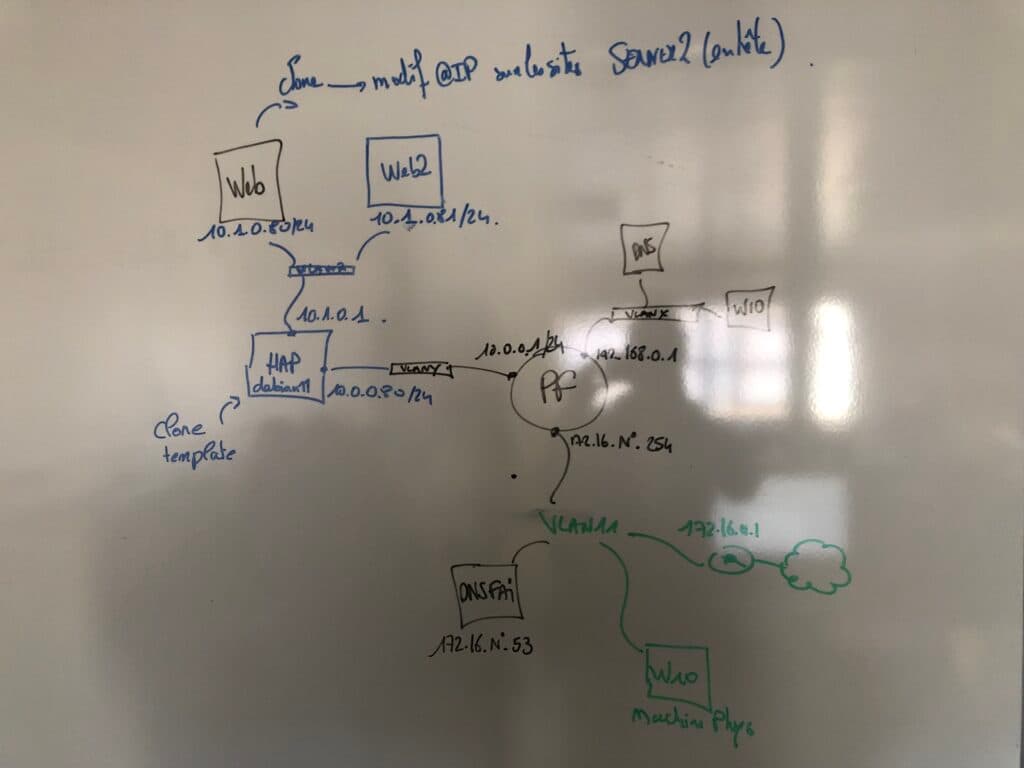 Clone → modif @IP sur les sites SERVER2 (entête).
Web
Web2
10.1.0.80/24
10.1.0.81/24.
10.1.0.1.
DNS
VLANX
W10
HAP
debian11
VLANY
10.0.0.1/24
192.168.0.1
10.0.0.80/24
PF
Clone
template
172.16.N°.254
VLAN11
172.16.0.1
DNSFAi
172.16.N°.53
W10
Machine Phys